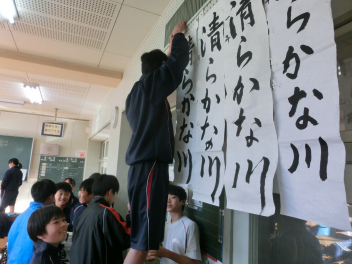 清らかな川
清らかな川
清らかな川
清らかな川